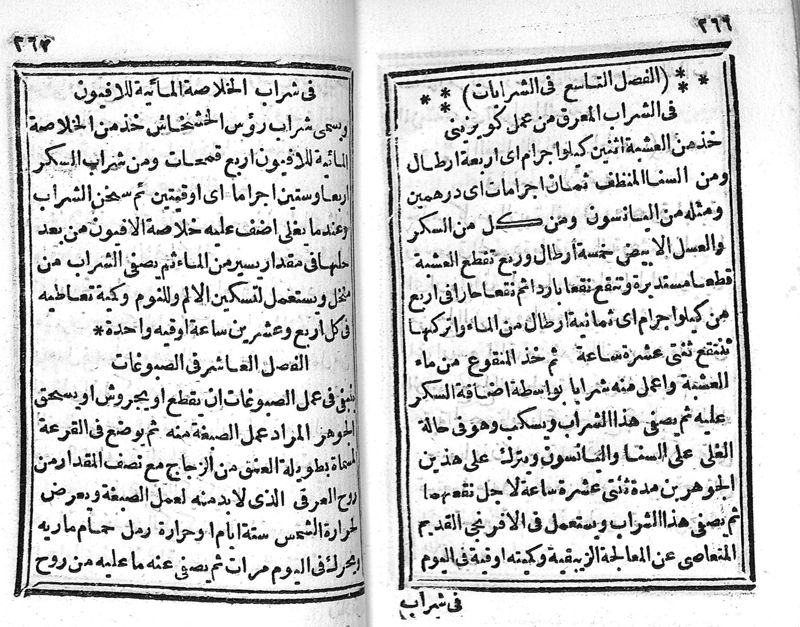 ٢٦٦
* * (الفصل التاسع فى الشرابات) * *
فى الشراب المعرق من عمل كويزنى
خذ من العشبة اثنين كيلوا جرام اى اربعة ارطال
ومن السنا المنظف ثمان اجرامات اى درهمين
ومثله من اليانسون ومن كل من السكر
والعسل الابيض خمسة أرطال وربع تقطع العشبة
قطعا مستديرة وتنقع نقعا باردا ثم نقعا حارا فى اربع
من كيلوا جرام اى ثمانية ارطال من الماء واتركها
تنتقع ثنتى عشرة ساعة ثم خذ المنقوع من ماء
العشبة واعمل منه شرابا بواسطة اضافة السكر
عليه ثم يصفى هذا الشراب ويسكب وهو فى حالة
الغلى على السنا واليانسون ويترك على هذين
الجوهرين مدة ثنتى عشرة ساعة لاجل نقعهما
ثم يصفى هذا الشراب ويستعمل فى الافرنجى القديم
المتعاصى عن المعالجة الزيبقية وكميته اوقية فى اليوم
فى شراب
٢٦٧
فى شراب الخلاصة المائية للافيون
ويسمى شراب رؤس الخشخاش خذ من الخلاصة
المائية للافيون اربع قمحات ومن شراب السكر
اربعا وستين اجراما اى اوقيتين ثم سخن الشراب
وعندما يغلى اضف عليه خلاصة الافيون من بعد
حلها فى مقدار يسير من الماء ثم يصفى الشراب من
منخل ويستعمل لتسكين الالم وللنوم وكمية تعاطيه
فى كل اربع وعشرين ساعة اوقية واحدة*
الفصل العاشر فى الصبوغات
ينبغى فى عمل الصبوغات ان يقطع او يجروش او يسحق
الجوهر المراد عمل الصبغة منه ثم يوضع فى القرعة
المسماة بطويلة العنق من الزجاج مع نصف المقدار من
روح العرقى الذى لابد منه لعمل الصبغة ويعرض
لحرارة الشمس ستة ايام او حرارة رمل حمام ماريه
ويحرك فى اليوم مرات ثم يصفى عنه ما عليه من روح